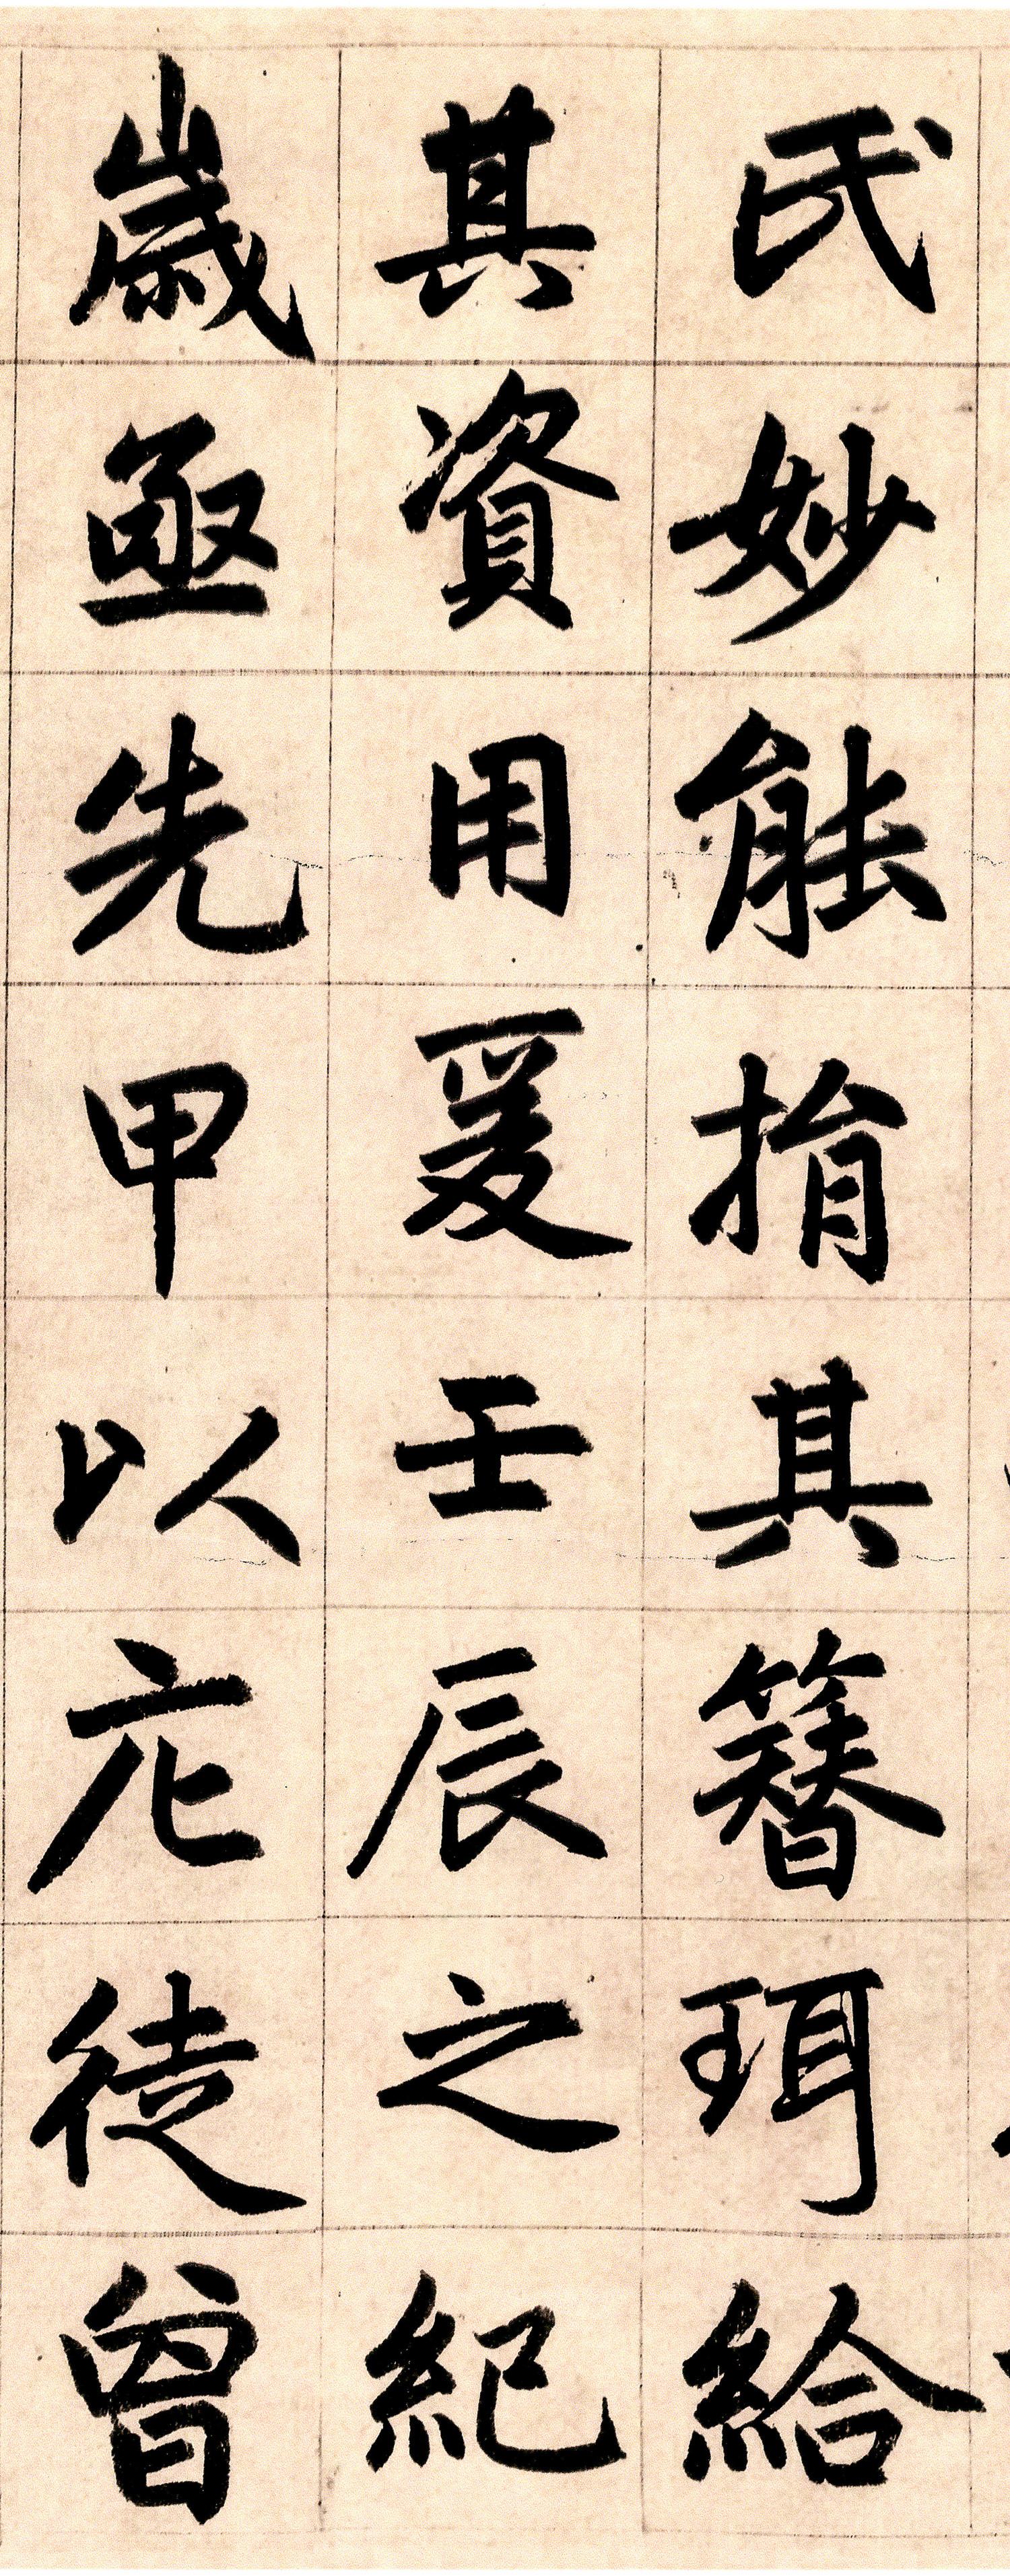 氏妙能捐其簪珥給
其資用爰壬辰之紀
歲亟先甲以庀徒曾